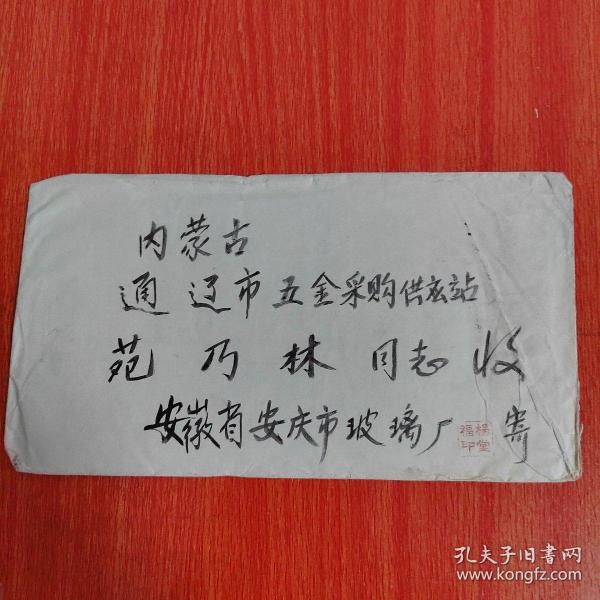 内蒙古
通辽市五金采购供应站
苑乃林同志收
安徽省安庆市玻璃厂 寄
杨堂
福印
孔夫子旧书网
www.kongfz.com